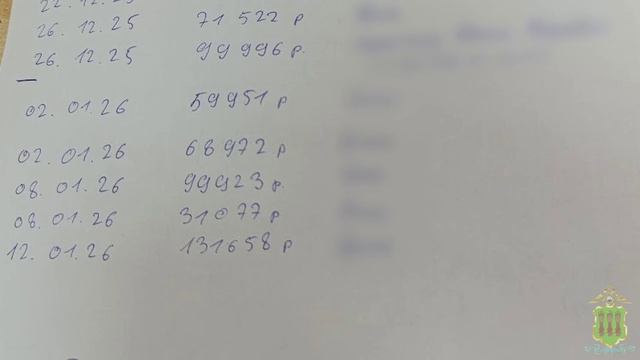 22.12.25
26.12.25 71 522 р
26.12.25 99 996 р.
02.01.26 59951 р
02.01.26 68972 р
08.01.26 99923 р.
08.01.26 31077 р
12.01.26 131658 р